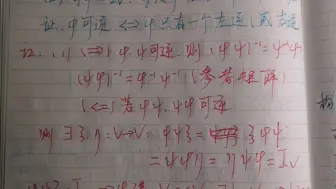 证: φ可逆 ⟺ φ只有一个左逆(或右逆
证: (1) (⟹) φ,ψ可逆, 则 (φψ)⁻¹=ψ⁻¹φ⁻¹
(ψφ)⁻¹=φ⁻¹ψ⁻¹ (参考矩阵)
(⟸) 若φψ, ψφ可逆
则 ∃ξ,η: V→V: φψξ=ξφψ
=ψφη=ηψφ=Iv